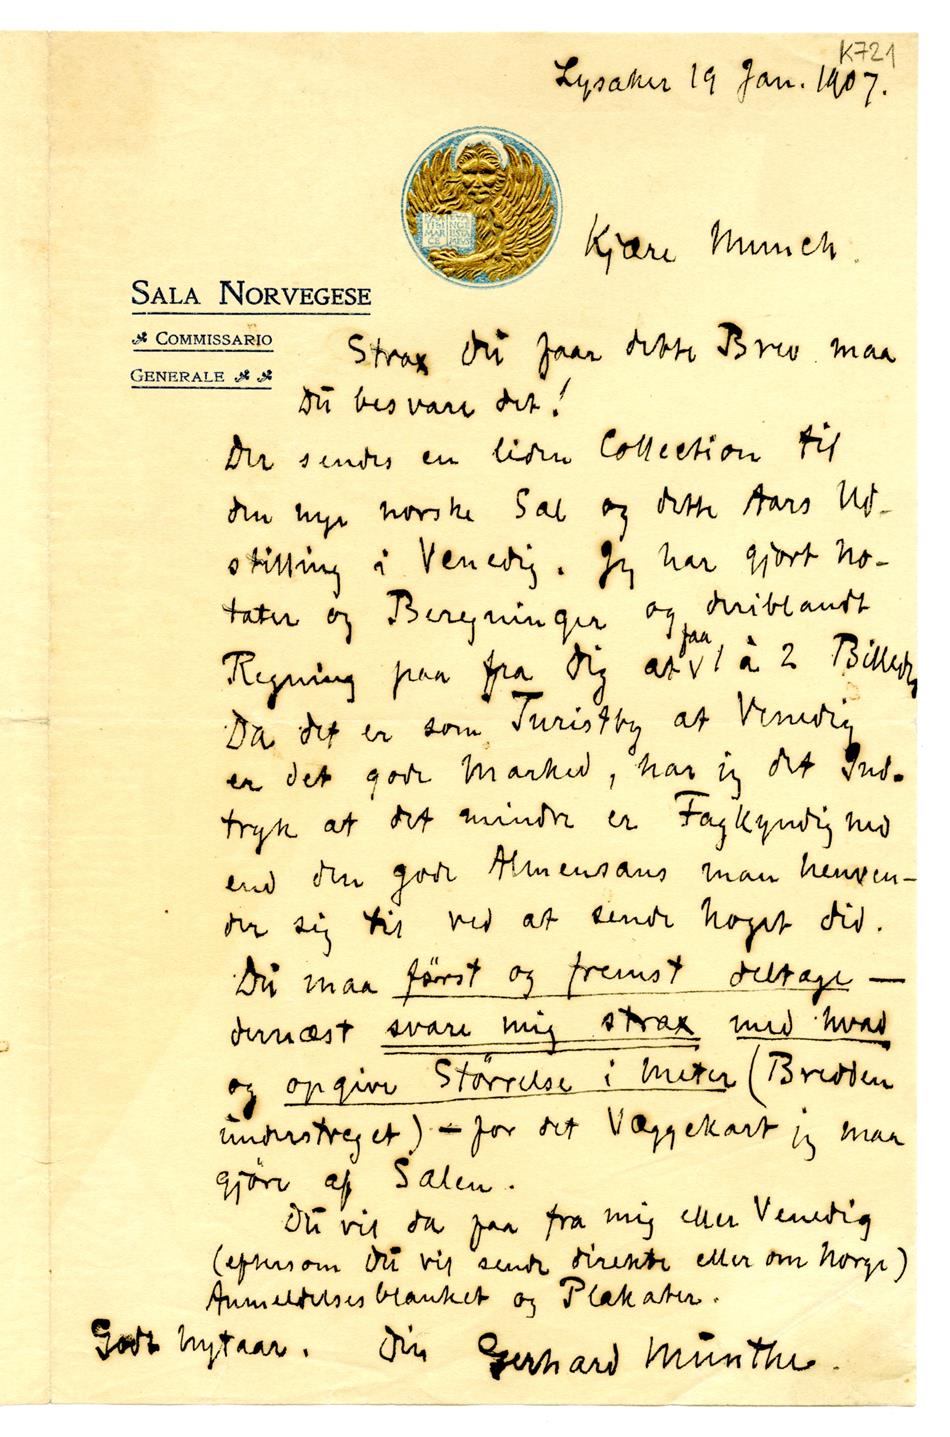 K721
Lysaker 19 Jan. 1907.
PAX
TIBI
MAR
CE
EVA
NGE
LISTA
MEVS
Kjære Munch.
SALA NORVEGESE
COMMISSARIO
GENERALE
Strax Du faar dette Brev maa
Du besvare det!
Der sendes en liden Collection til
den nye norske Sal og dette Aars Ud-
stilling i Venedig. Jeg har gjort No-
tater og Beregninger og deriblandt
faa
Regning paa fra Dig at 1 à 2 Billeder
Da det er som Turistby at Venedig
er det gode Marked, har jeg det Ind-
tryk at det mindre er Fagkyndighed
end den gode Almensans man henven-
der sig til ved at sende noget did.
Du maa först og fremst deltage —
dernæst svare mig strax med hvad
og opgive Störrelse i Meter (Bredden
understreget) — for det Væggekart jeg maa
gjöre af Salen.
Du vil da faa fra mig eller Venedig
(eftersom Du vil sende direkte eller om Norge)
Anmeldelsesblanket og Plakater.
Godt Nytaar. Din Gerhard Munthe.